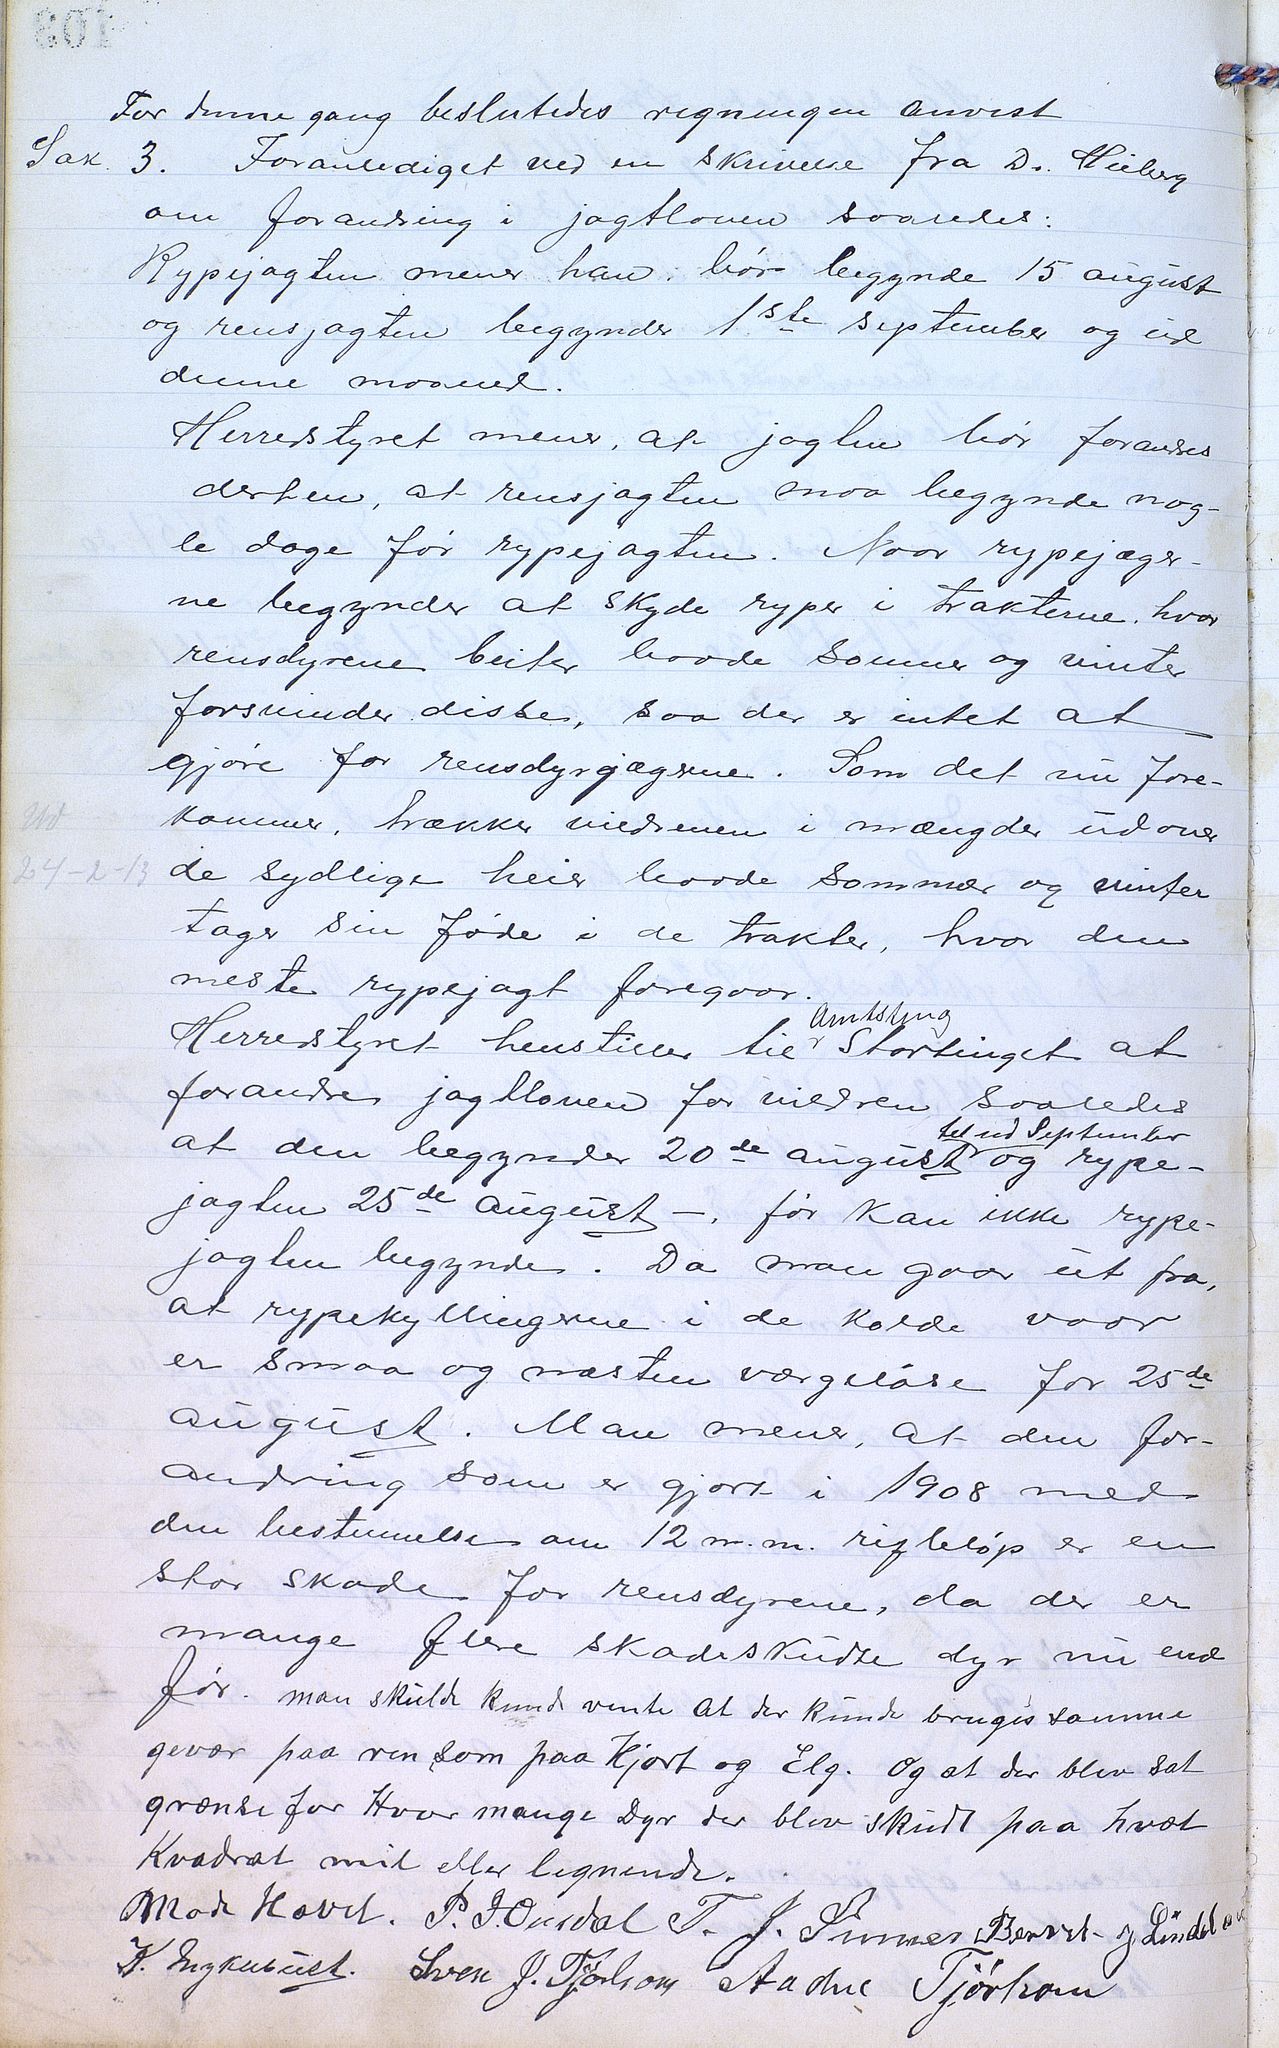 103
For denne gang beslutedes regningen anvist
Sak 3. Foranlediget ved en skrivelse fra D. Hieberg
om forandring i jagtloven saaledes:
Rypejagten mener han bør begynde 15 august
og rensjagten begynder 1ste september og ud
denne maaned.
Herredstyret mener, at jagten bør forandres
derhen, at rensjagten maa begynde nog-
le dage før rypejagten. Naar rypejæger-
ne begynder at skyde ryper i trakterne hvor
rensdyrene beiter baade sommer og vinter
forsvinder disse, saa der er intet at
gjøre for rensdyrjægerne. Som det nu fore-
kommer, trækker vildrenen i mængder udover
de sydlige heier baade sommer og vinter
24-2-13
tager sin føde i de trakter, hvor den
meste rypejagt foregaar.
Amtsting
Herredstyret henstiller til Stortinget at
forandre jagtloven for vildren saaledes
til ud September
at den begynder 20de august og rype-
jagten 25de august –, før kan ikke rype-
jagten begynde. Da man gaar ut fra,
at rypekyllingerne i de kolde vaar
er smaa og næsten værgeløse før 25de
august. Man mener, at den for-
andring som er gjort i 1908 med
den bestemmelse om 12 m.m. rifleløp er en
stor skade for rensdyrene, da der er
mange flere skadeskudte dyr nu end
før. man skulde kunde vente at der kunde bruges samme
gevær paa ren som paa Hjort og Elg. Og at der blev sat
grænse for Hvor mange Dyr der blev skudt paa hvæt
Kvadrat mil eller lignende.
Mode Havet. P. J. Ousdal T. J. Sinnes
Sven J. Tjørhom Aadne Tjørhom